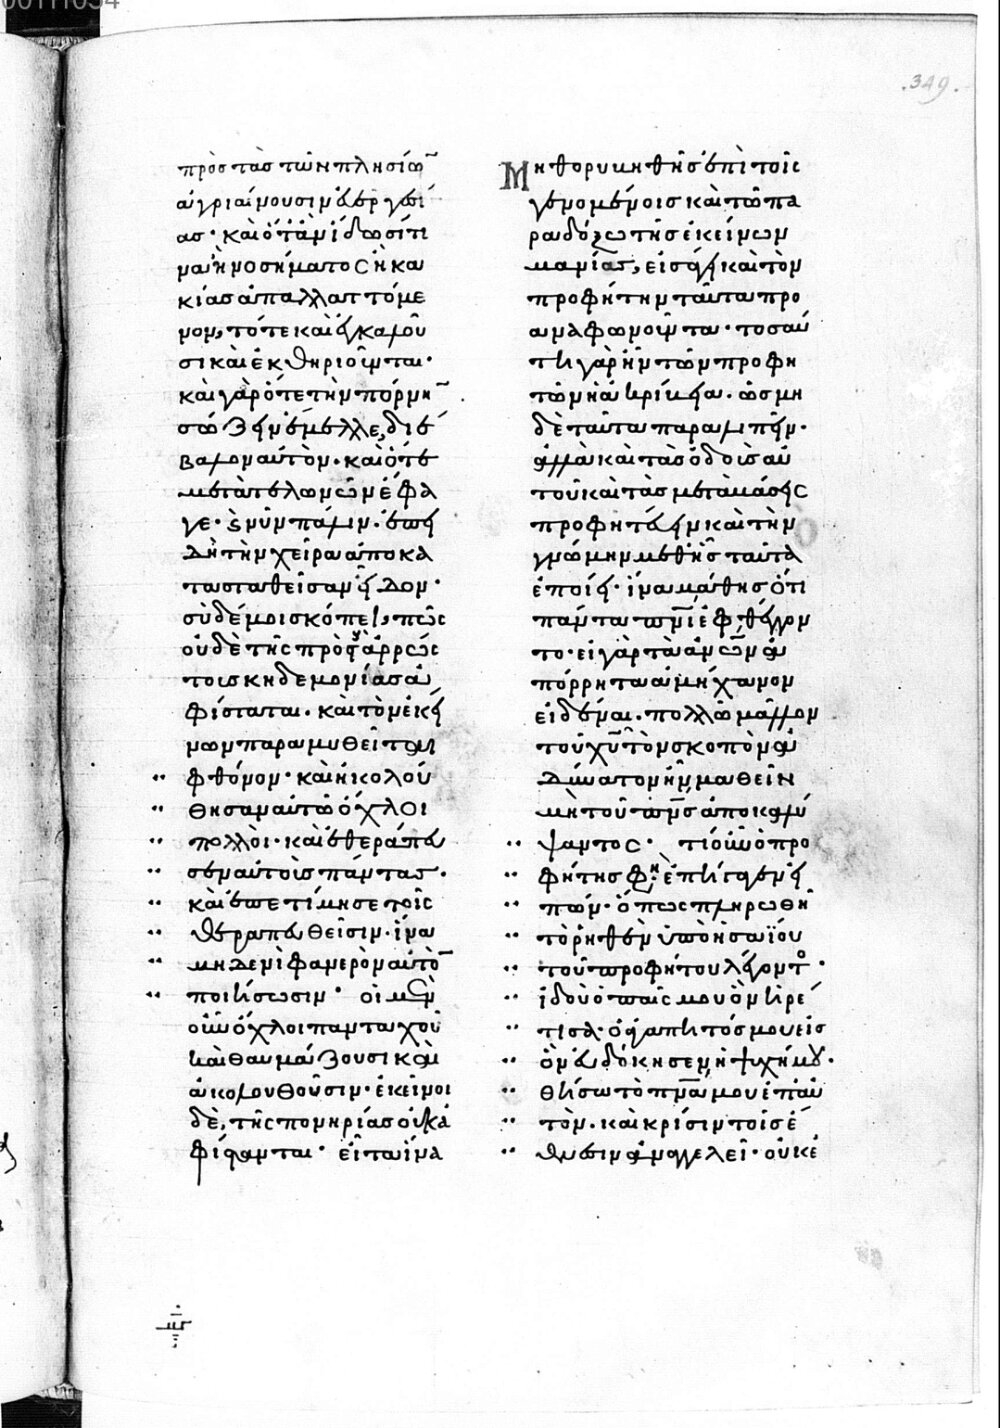 .349.
πρὸς τὰς τῶν πλησίο̅
ἀγριαίνουσιν εὐεργεσί
ας· καὶ ὅταν ἴδωσί τι
να ἢ νοσήματος ἢ κα
κίας ἀπαλλαττόμε
νον, τότε καὶ ἐγκαλοῦ
σι καὶ ἐκθηριοῦνται·
καὶ γὰρ ὅτε τὴν πόρνη̅
σώζειν ἔμελλε, διέ
βαλον αὐτὸν· καὶ ὅτε
μετὰ τελωνῶν ἔφα
γε· ἐνῦν πάλιν· ἐπει
δὴ τὴν χεῖρα ἀποκα
τασταθεῖσαν εἶδον·
σὺ δέ μοι σκόπει, πῶς
οὐδὲ τῆς πρὸς ἀρρώς
τοις κηδεμονίας ἀ
φίσταται· καὶ τὸν ἐκεί
νων παραμυθεῖται
φθόνον· καὶ ἠκολού
θησαν αὐτῶ ὄχλοι
πολλοὶ· καὶ ἐθεράπευ
σεν αὐτοὺς πάντας·
καὶ ἐπετίμησε τοῖς
θεραπευθεῖσιν· ἵνα
μηδενὶ φανερὸν αὐτὸ̅
ποιήσωσιν· οἱ μὲν
οὖν ὄχλοι πανταχοῦ
καὶ θαυμάζουσι καὶ
ἀκολουθοῦσιν· ἐκεῖνοι
δὲ, τῆς πονηρίας οὐκ ἀ
φίστανται· εἶτα ἵνα
Μὴ θορυβηθῆς ἐπὶ τοῖς
γενομένοις καὶ τῶ πα
ραδόξω τῆς ἐκείνων
μανίας, εἰσάγει καὶ τὸν
προφήτην ταῦτα προ
αναφωνοῦντα· τοσαύ
τη γὰρ ἦν τῶν προφη
τῶν ἡ ἀκρίβεια· ὡς μη
δὲ ταῦτα παραλιπεῖν·
ἀλλὰ καὶ τὰς ὁδοὺς αὐ
τοῦ καὶ τὰς μεταβάσεις
προφητεύειν καὶ τὴν
γνώμην μεθῆς ταῦτα
ἐποίει· ἵνα μάθης ὅτι
πάντα πν̅ι ἐφθέγγον
το· εἰ γὰρ τὰ ἀν̅ῶν ἀ
πόρρητα ἀμήχανον
εἰδέναι· πολλῶ μᾶλλον
τοῦ χυ̅ τὸν σκοπὸν ἀ
δύνατον ἦν μαθεῖν
μὴ τοῦ πν̅σ ἀποκαλύ
ψαντος· τί οὖν ὁ προ
φήτης φησὶν; ἐπήγαγεν εἰ
πὼν· ὅπως πληρωθῆ
τὸ ῥηθὲν ὑπὸ ἠσαΐου
τοῦ προφήτου λέγοντο·
ἰδοὺ ὁ παῖς μου ὃν ἡρέ
τισα· ὁ ἀγαπητός μου εἰς
ὃν εὐδόκησεν ἡ ψυχή μου·
θήσω τὸ πν̅α μου ἐπ αὐ
τὸν· καὶ κρίσιν τοῖς ἔ
θνεσιν ἀναγγελεῖ· οὐκ ἐ